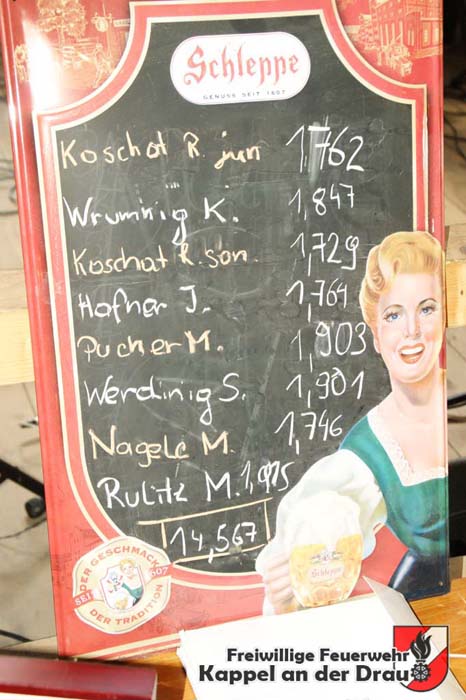 Schleppe
GENUSS SEIT 1607
Koschat R. jun 1,762
Wrumnig K. 1,847
Koschat R. sen. 1,729
Hafner J. 1,764
Pucher M. 1,903
Werdinig S. 1,901
Nagele M. 1,746
Rulitz M. 1,915
14,567
DER GESCHMACK
DER TRADITION
Schleppe
Freiwillige Feuerwehr
Kappel an der Drau